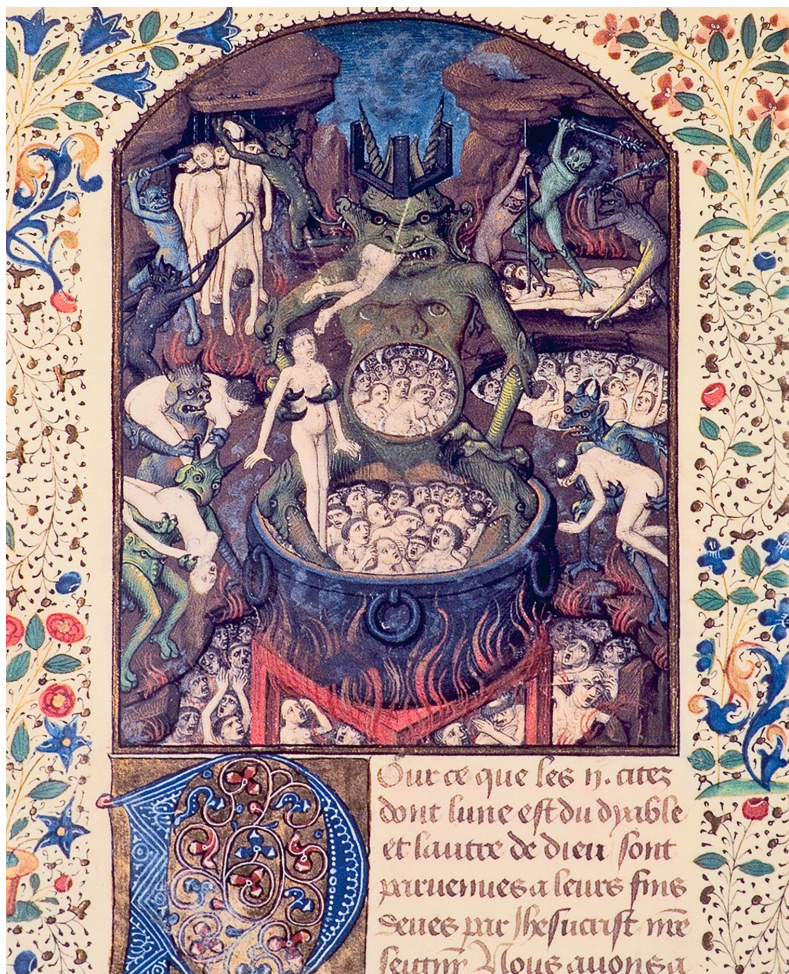 POur ce que les ij. citez
dont lune est du dyable
et lautre de dieu sont
paruenues a leurs fins
deues par Jhesucrist nr̄e
Nous auons a